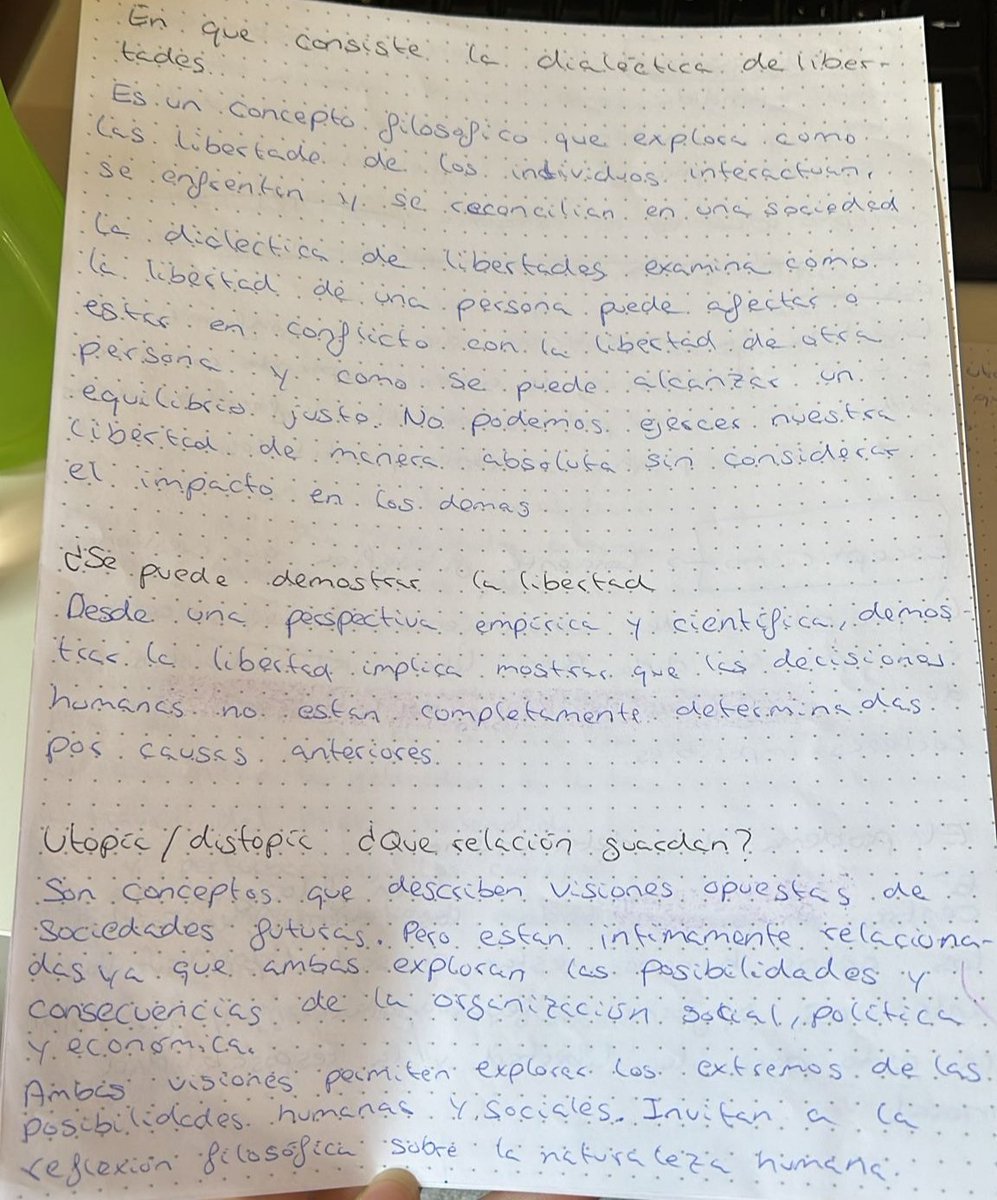 En que consiste la dialéctica de liber-
tades
Es un concepto filosofico que explora como
las libertade de los individuos interactuan,
se enfrentan y se reconcilian en una sociedad
La dialectica de libertades examina como
la libertad de una persona puede afectar o
estar en conflicto con la libertad de otra
persona y como se puede alcanzar un
equilibrio justo. No podemos ejercer nuestra
libertad de manera absoluta sin considerar
el impacto en los demas
¿Se puede demostrar la libertad
Desde una perspectiva empirica y cientifica, demos-
trar la libertad implica mostrar que las decisiones
humanas no estan completamente determinadas
por causas anteriores.
Utopia / distopia ¿Que relación guardan?
Son conceptos que describen visiones opuestas de
sociedades futuras. Pero estan intimamente relaciona-
das ya que ambas exploran las posibilidades y
consecuencias de la organización social, politica
y economica.
Ambas visiones permiten explorar los extremos de las
posibilidades humanas y sociales. Invitan a la
reflexión filosófica sobre la naturaleza humana.